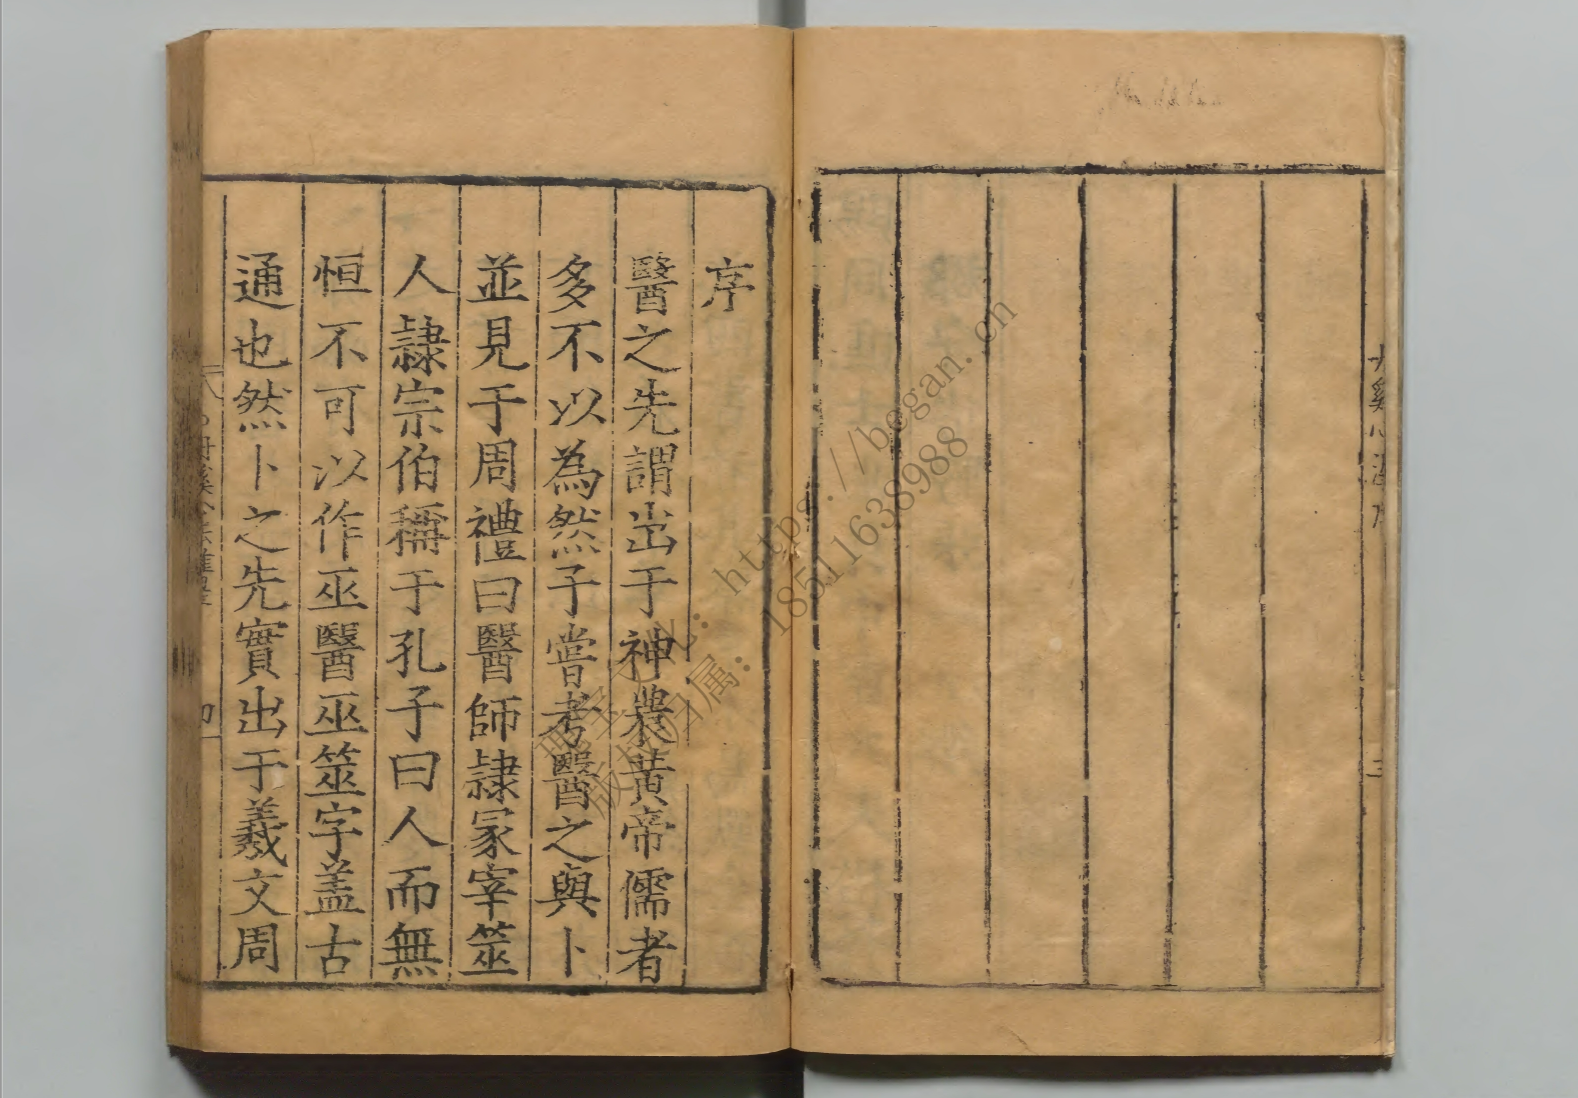 序
醫之先謂出于神農黃帝儒者
多不以為然予嘗考醫之與卜
並見于周禮曰醫師隷冢宰筮
人隷宗伯稱于孔子曰人而無
恒不可以作巫醫巫筮字盖古
通也然卜之先實出于羲文周
https://began.cn
18511638988